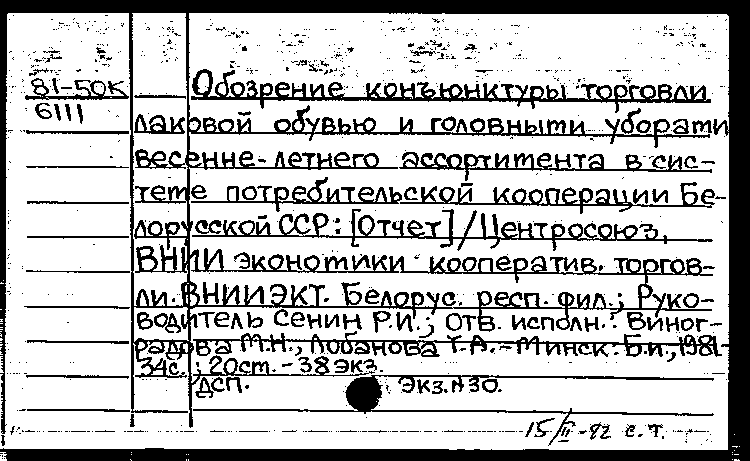 81-50К Обозрение конъюнктуры торговли
6111 лаковой обувью и головными уборами
весенне-летнего ассортимента в сис-
теме потребительской кооперации Бе-
лорусской ССР: [Отчет] / Центросоюз,
ВНИИ экономики кооператив. торгов-
ли. ВНИИЭКТ. Белорус. респ. фил.; Руко-
водитель Сенин Р.И.; Отв. исполн.: Виног-
радова М.Н., Лобанова Т.А. - Минск: Б.и., 1981.-
34с.; 20 см. - 38 экз.
ДСП. Экз. N 30.
15/II-82 с.т.